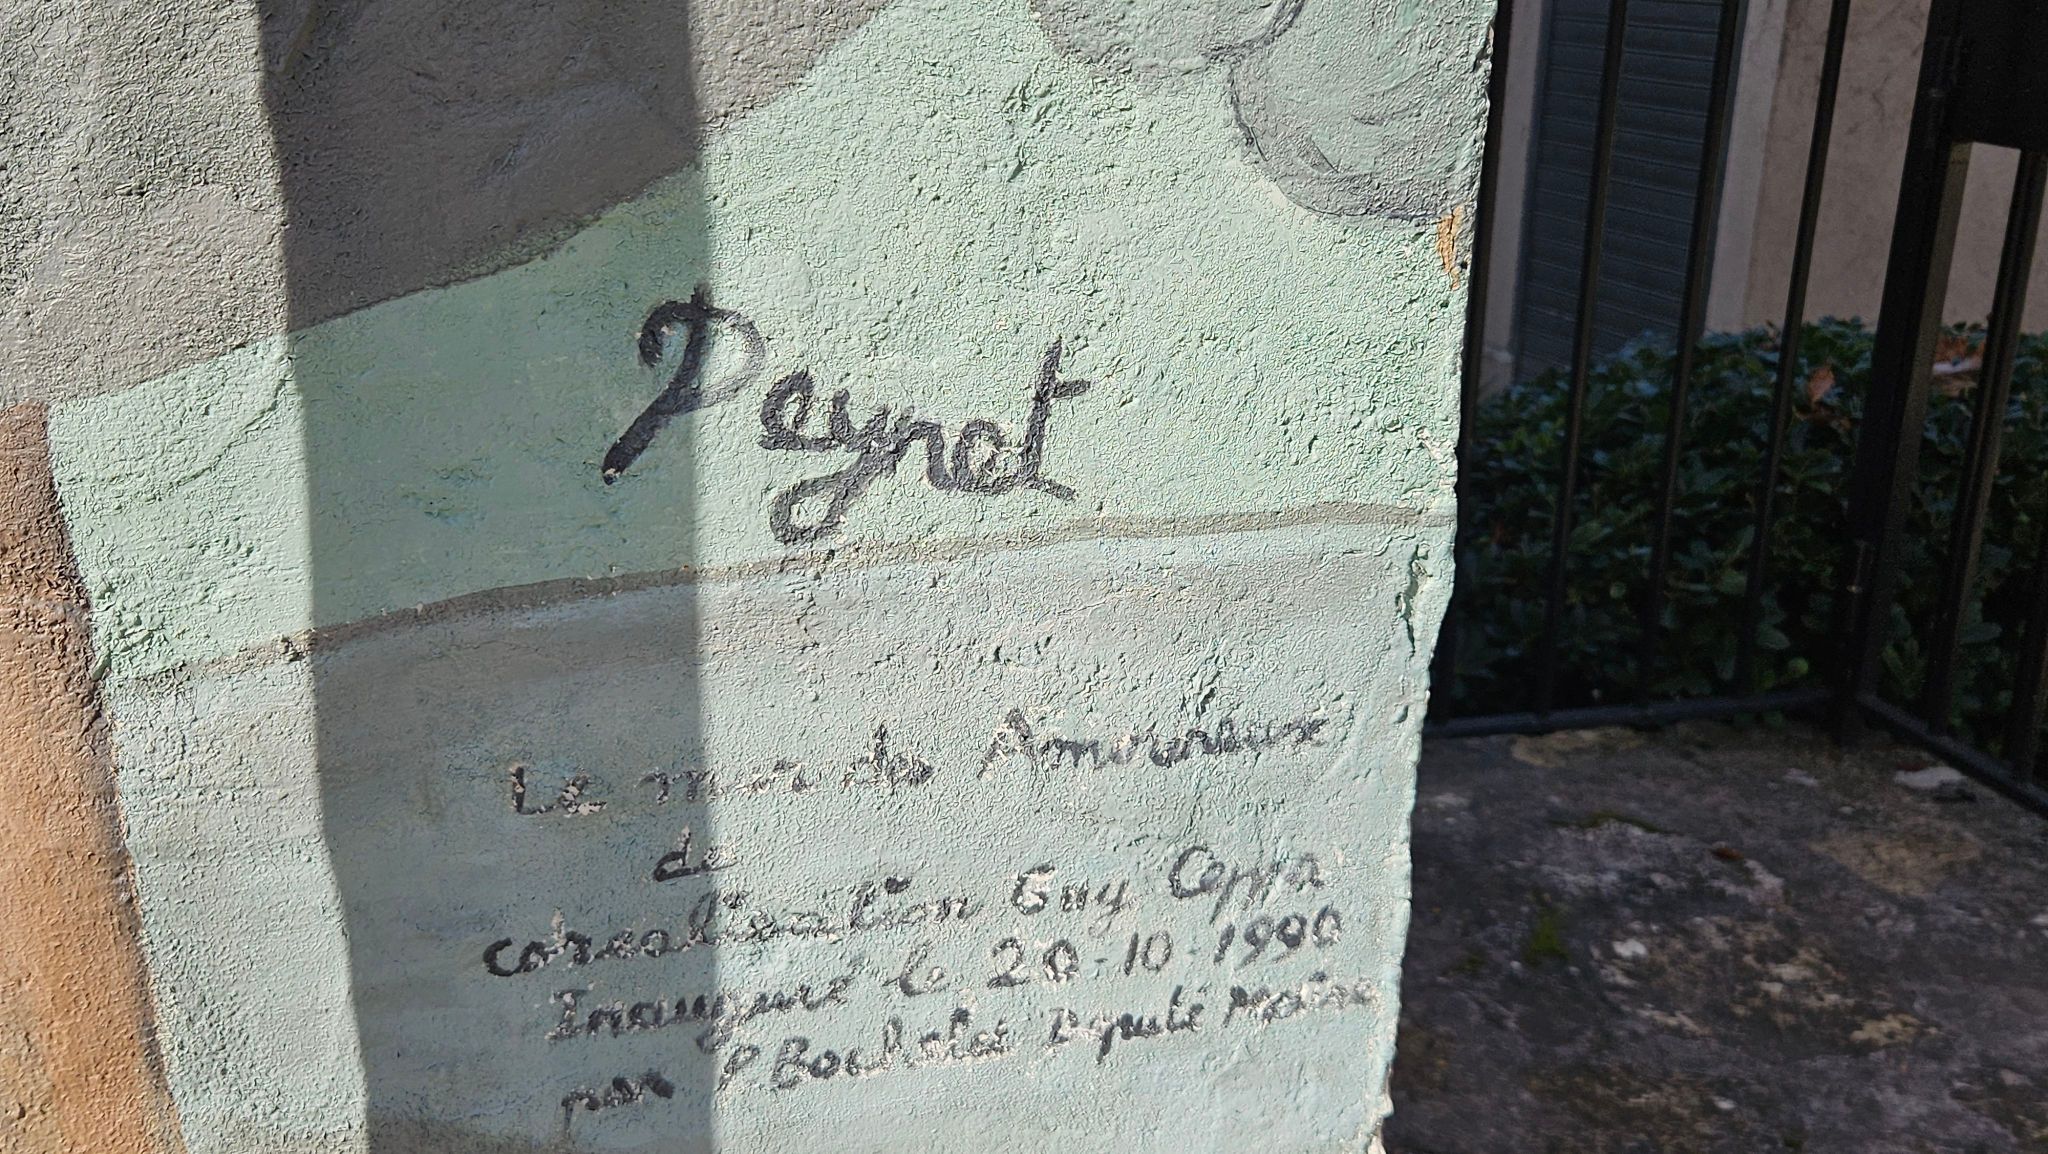 Peynet
Le mur des Amoureux
de
coréalisation Guy Ceppa
Inauguré le 20-10-1990
par P Bachelet Député Maire